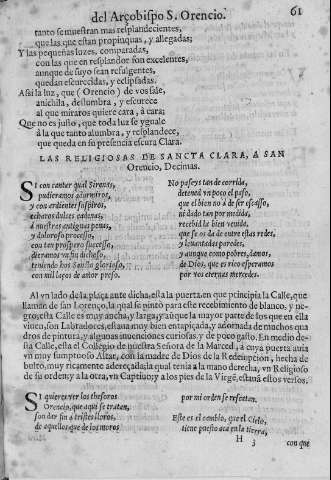 del Arçobispo S. Orencio. 61
tanto se muestran mas resplandecientes,
que las que estan propinquas, y allegadas;
Y las pequeñas luzes, comparadas,
con las que en resplandor son excelentes,
aunque de suyo sean refulgentes,
quedan escurecidas, y eclipsadas.
Assi la luz, que (Orencio) de vos sale,
anichila, deslumbra, y escurece
al que miraros quiere cara, à cara;
Que no es justo, que toda luz se yguale
à la que tanto alumbra, y resplandece,
que queda en su presencia escura Clara.
LAS RELIGIOSAS DE SANCTA CLARA, A SAN
Orencio, Decimas.
SI con cantar qual Sirenas,
pudieramos adormiros,
y con ardientes suspiros,
echaros dulces cadenas,
à nuestras antiguas penas,
y doloroso processo,
con tan prospero sucesso,
dieramos un fin dichoso,
teniendo hos Sancto glorioso,
con mil laços de amor preso.
No passeys tan de corrida,
detened un poco el passo,
que el bien no à de ser escasso,
ni dado tan por medida,
recebid la bien venida,
que se os da de entre estas redes,
y levantadas paredes,
y aunque como pobres, damos,
de Dios, que es rico esperamos
por vos eternas mercedes.
Al vn lado de la plaça ante dicha, esta la puerta, en que principia la Calle, que
llaman de san Lorenço, la qual se pintò para este recebimiento de blanco, y ne-
gro; esta Calle es muy ancha, y larga, y aũque la mayor parte de los que en ella
viuen, son Labradores, estaua muy bien entapiçada, y adornada de muchos qua
dros de pintura, y algunas inuenciones curiosas, y de poco gasto. En medio de-
sta Calle, esta el Collegio de nuestra Señora de la Merced, à cuya puerta auia
vn muy sumptuoso Altar, con la madre de Dios de la Redempcion, hecha de
bulto, muy ricamente adereçada, la qual tenia à la mano derecha, vn Religioso
de su orden, y à la otra, vn Captiuo; y à los pies de la Virgẽ, estauã estos versos.
SI quieres ver los thesoros
Orencio, que aqui se tratan,
son dar fin a tristes lloros,
de aquellos que de los moros
por mi orden se rescatan.
Este es el cambio, que el Cielo,
tiene puesto aca en la tierra,
H 3 con que